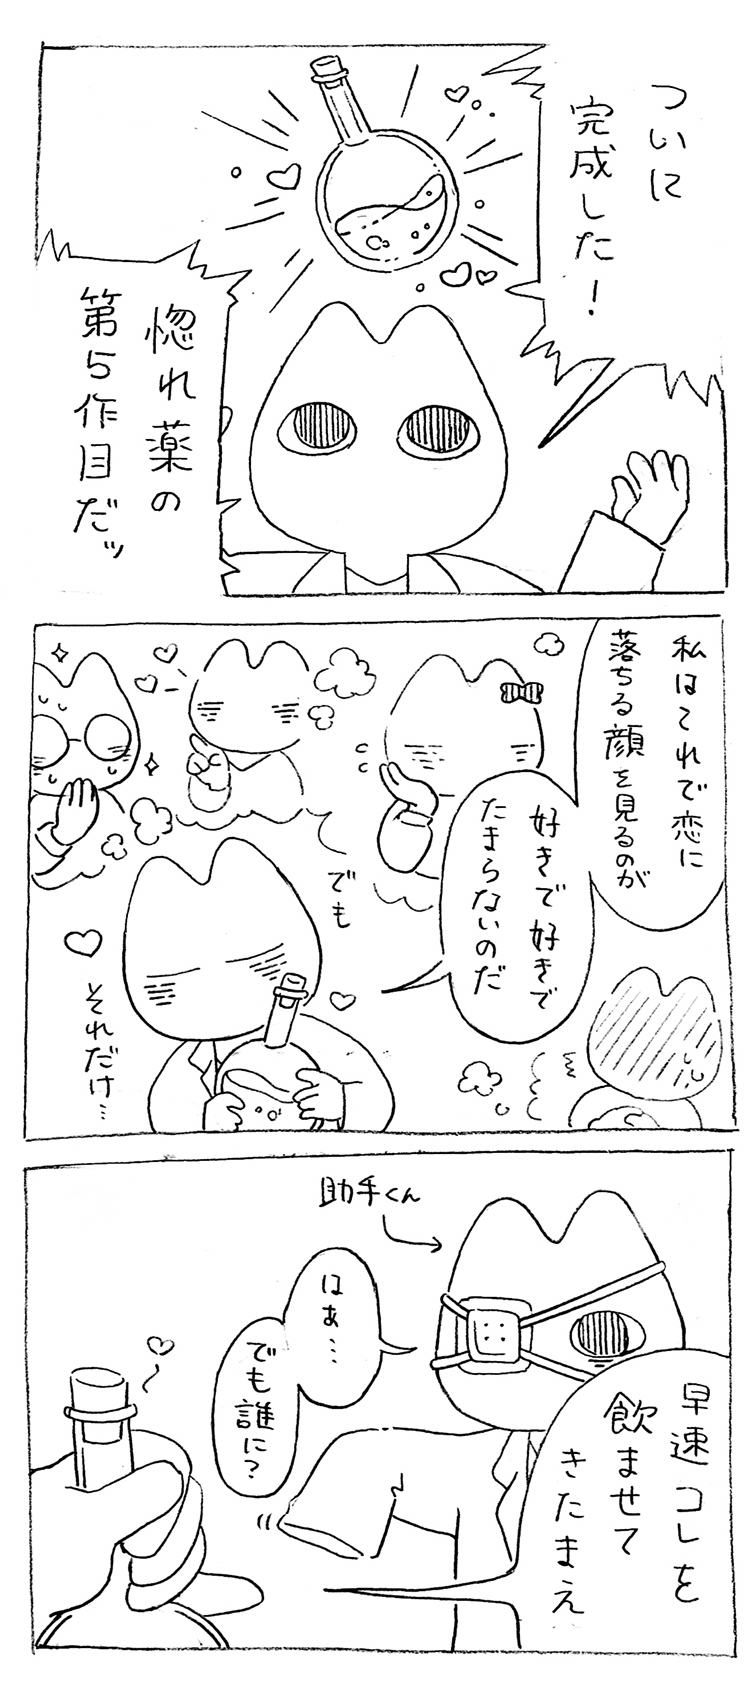 ついに
完成した!
惚れ薬の
第5作目だッ
私はこれで恋に
落ちる顔を見るのが
好きで好きで
たまらないのだ
でも
それだけ…
助手くん
はぁ…
でも誰に?
早速コレを
飲ませて
きたまえ